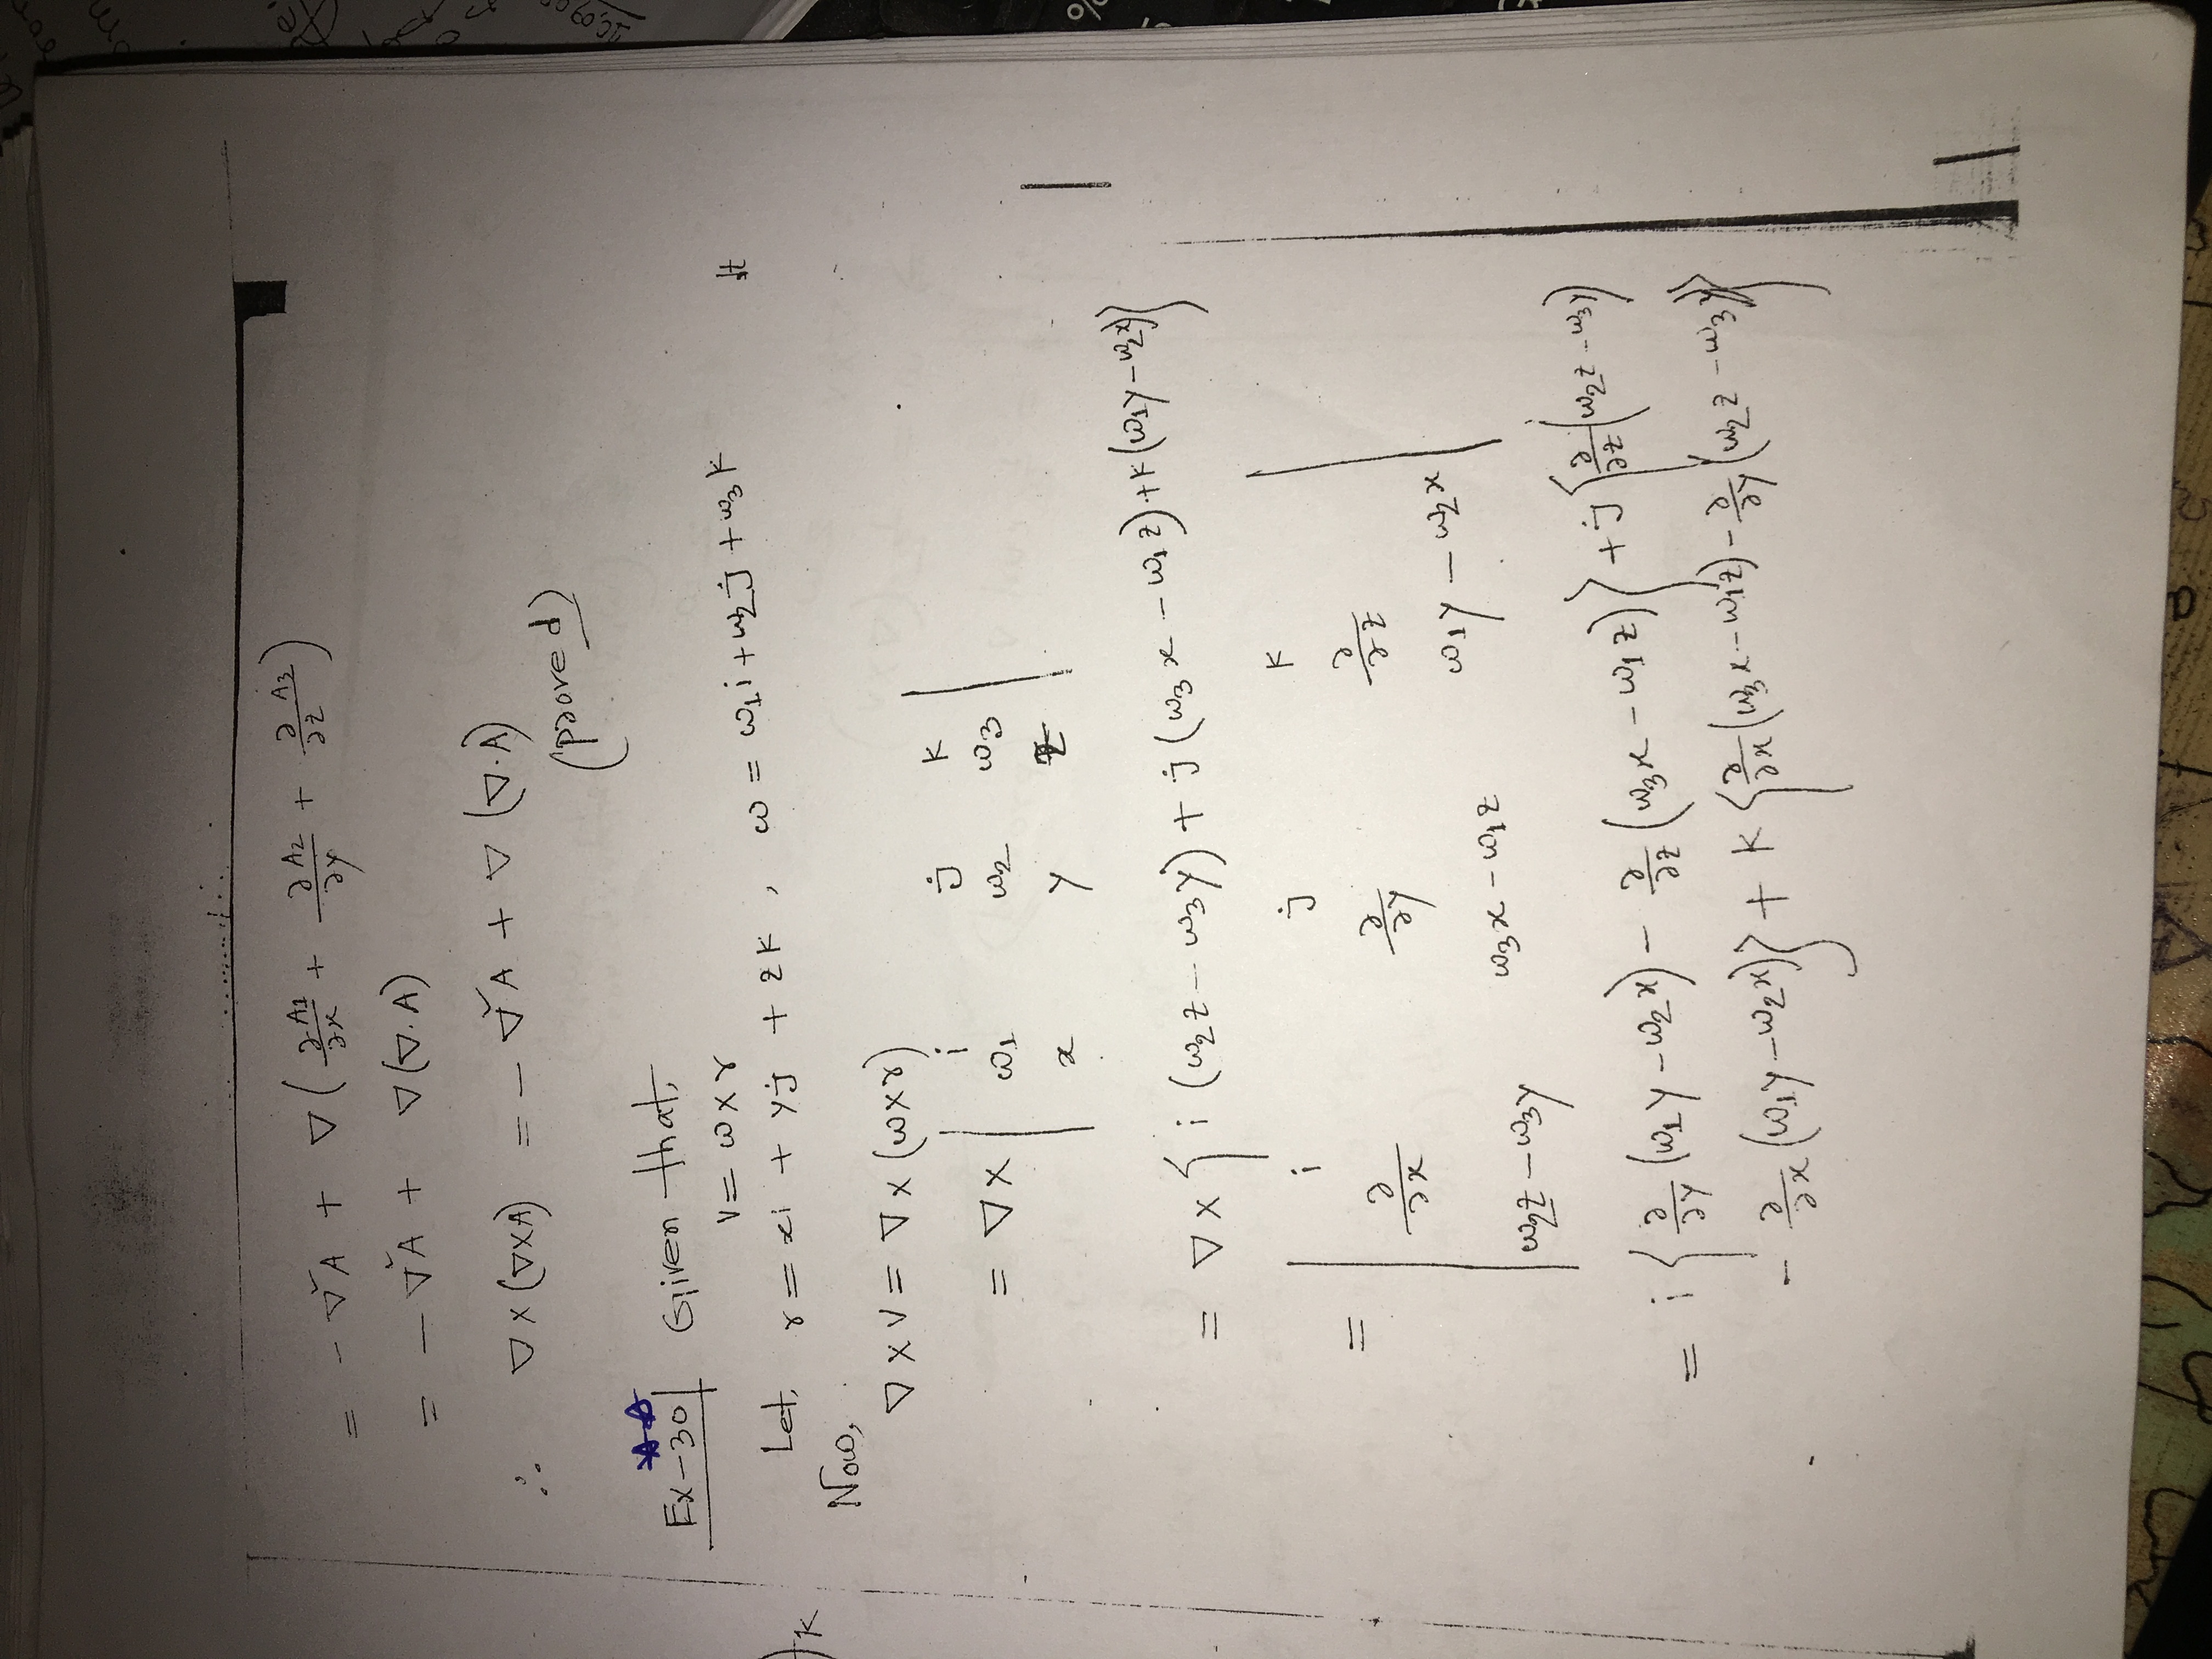 = - ∇²A + ∇(∂A1/∂x + ∂A2/∂y + ∂A3/∂z)
= - ∇²A + ∇(∇.A)
∴ ∇×(∇×A) = - ∇²A + ∇(∇.A)
(proved)
Ex-30 Given that,
v = ω×r
Let, r = xi + yj + zk, ω = ω1i + ω2j + ω3k
Now,
∇×v = ∇×(ω×r)
= ∇× | i j k |
| ω1 ω2 ω3 |
| x y z |
= ∇×{ i(ω2z - ω3y) + j(ω3x - ω1z) + k(ω1y - ω2x)}
= | i j k |
| ∂/∂x ∂/∂y ∂/∂z |
| ω2z - ω3y ω3x - ω1z ω1y - ω2x |
= i{ ∂/∂y (ω1y - ω2x) - ∂/∂z (ω3x - ω1z)} + j{ ∂/∂z (ω2z - ω3y)
- ∂/∂x (ω1y - ω2x)} + k{ ∂/∂x (ω3x - ω1z) - ∂/∂y (ω2z - ω3y)}
)k
%